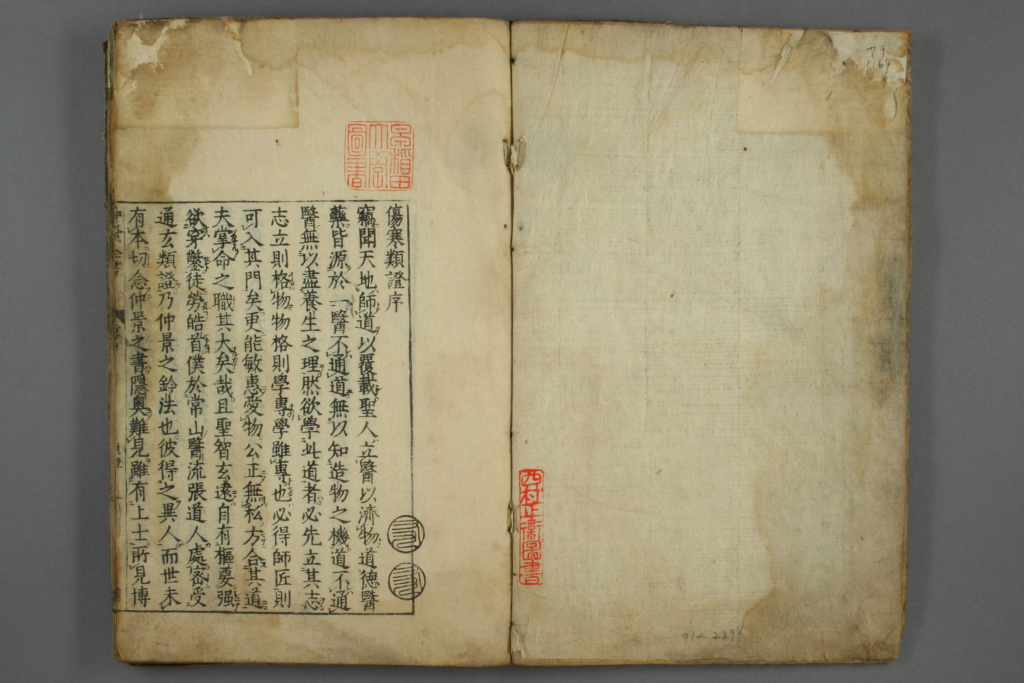 傷寒類證序
竊聞天地師道以覆載聖人立醫以濟物道德醫
藥皆源於一醫不通道無以知造物之機道不通
醫無以盡養生之理然欲學此道者必先立其志
志立則格物物格則學專學雖專也必得師匠則
可入其門矣更能敏惠愛物公正無私方合其道
夫掌命之職其大矣哉且聖智玄遠自有樞要强
欲穿鑿徒勞皓首僕於常山醫流張道人處密受
通玄類證乃仲景之鈐法也彼得之異人而世未
有本切念仲景之書隱奧難見雖有上士所見博
西村正衛圖書
91-229